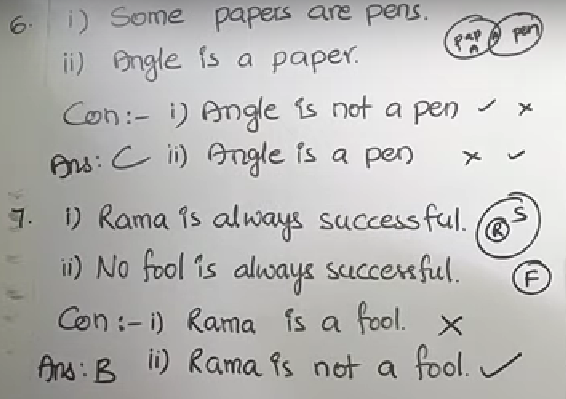 6. i) Some papers are pens.
pap A A pen
ii) Angle is a paper.
Con:- i) Angle is not a pen ✓ ×
Ans: C ii) Angle is a pen × ✓
7. i) Rama is always successful. R S
ii) No fool is always successful. F
Con:- i) Rama is a fool. ×
Ans: B ii) Rama is not a fool. ✓